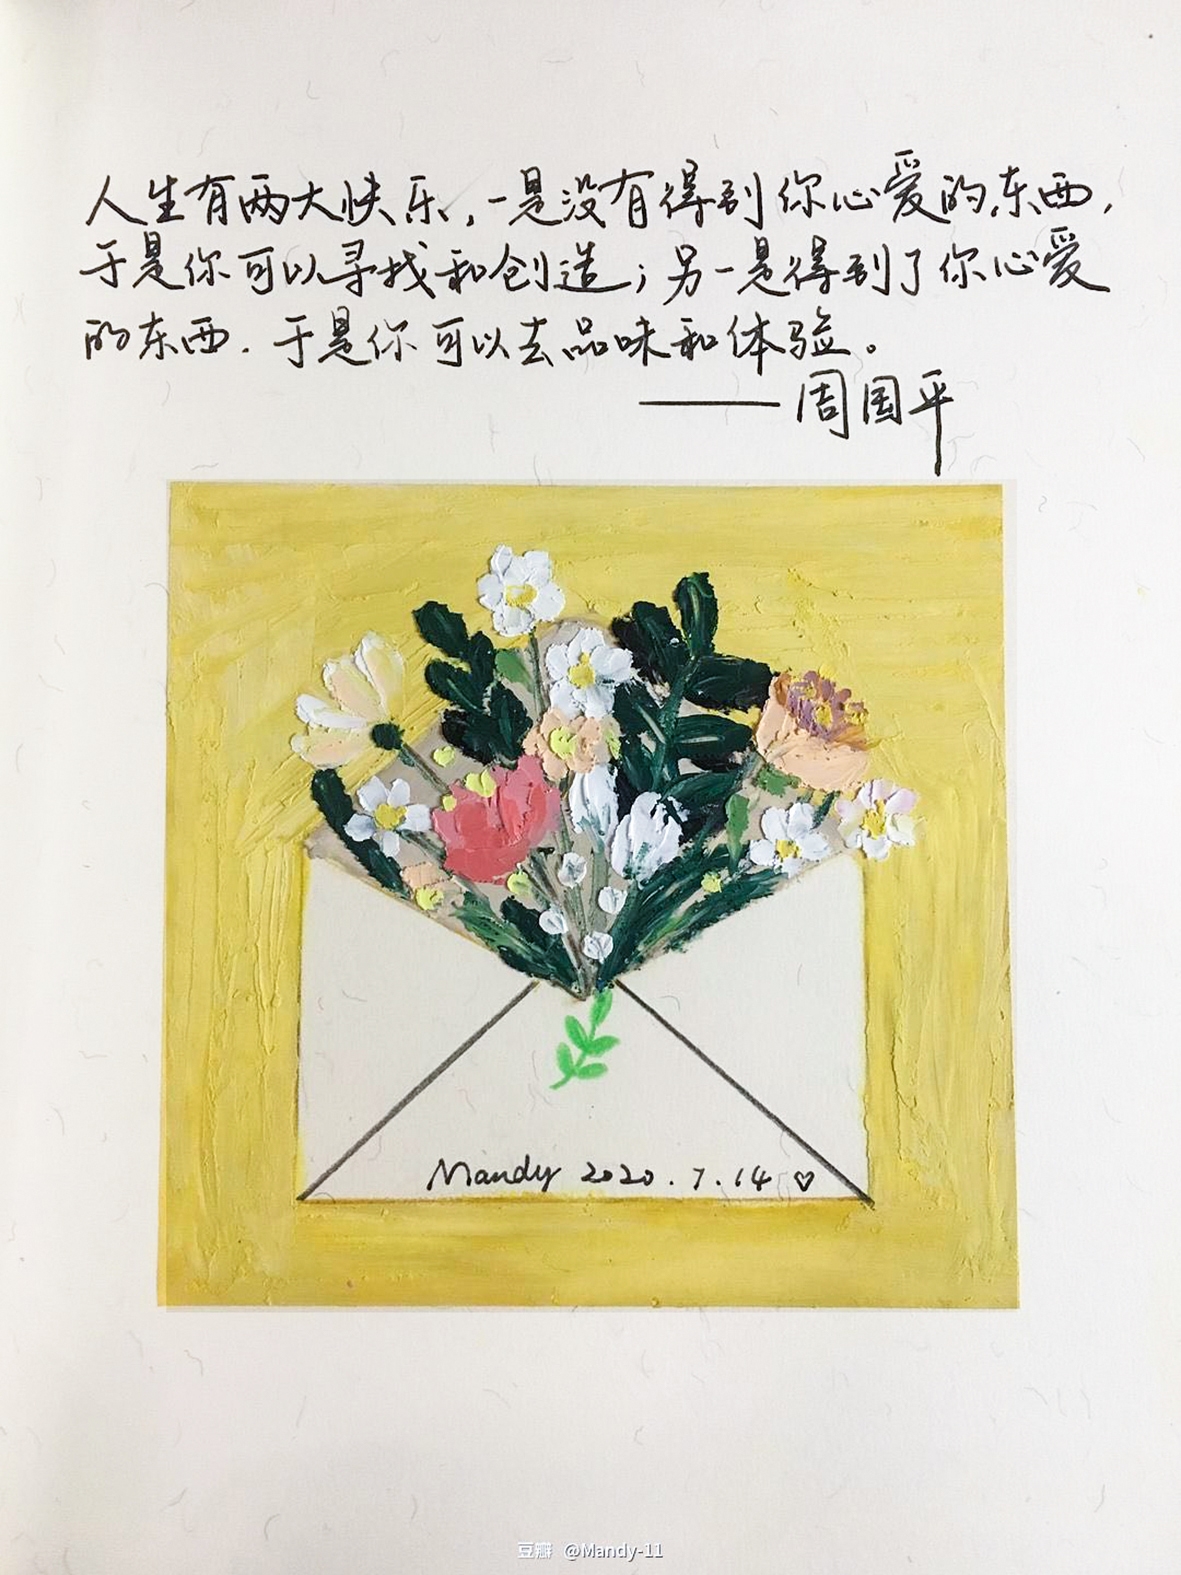 人生有两大快乐，一是没有得到你心爱的东西，
于是你可以寻找和创造；另一是得到了你心爱
的东西．于是你可以去品味和体验。
——周国平
Mandy 2020.7.14♡
豆瓣 @Mandy-11